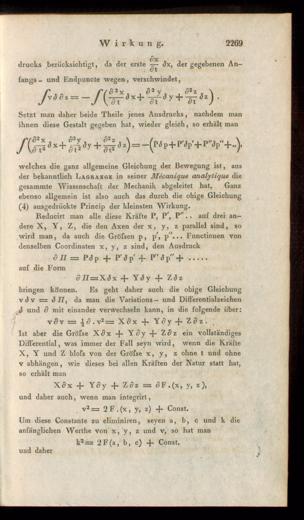 Wirkung. 2269
drucks berücksichtigt, da der erste ∂x/∂t δx, der gegebenen An-
fangs- und Endpuncte wegen, verschwindet,
∫vδ∂s = — ∫(∂²x/∂t δx + ∂²y/∂t δy + ∂²z/∂t δz) .
Setzt man daher beide Theile jenes Ausdrucks, nachdem man
ihnen diese Gestalt gegeben hat, wieder gleich, so erhält man
∫(∂²x/∂t² δx + ∂²y/∂t² δy + ∂²z/∂t² δz) = —(Pδp + P'δp' + P''δp'' + ..),
welches die ganz allgemeine Gleichung der Bewegung ist, aus
der bekanntlich LAGRANGE in seiner Mécanique analytique die
gesammte Wissenschaft der Mechanik abgeleitet hat. Ganz
ebenso allgemein ist also auch das durch die obige Gleichung
(4) ausgedrückte Princip der kleinsten Wirkung.
Reducirt man alle diese Kräfte P, P', P''.. auf drei an-
dere X, Y, Z, die den Axen der x, y, z parallel sind, so
wird man, da auch die Größen p, p', p''... Functionen von
denselben Coordinaten x, y, z sind, den Ausdruck
∂Π = P∂p + P'∂p' + P''∂p'' + .....
auf die Form
∂Π = X∂x + Y∂y + Z∂z
bringen können. Es geht daher auch die obige Gleichung
vδv = δΠ, da man die Variations- und Differentialzeichen
δ und ∂ mit einander verwechseln kann, in die folgende über:
v∂v = ½∂.v² = X∂x + Y∂y + Z∂z.
Ist aber die Größe X∂x + Y∂y + Z∂z ein vollständiges
Differential, was immer der Fall seyn wird, wenn die Kräfte
X, Y und Z bloß von der Größe x, y, z ohne t und ohne
v abhängen, wie dieses bei allen Kräften der Natur statt hat,
so erhält man
X∂x + Y∂y + Z∂z = ∂F.(x, y, z),
und daher auch, wenn man integrirt,
v² = 2F.(x, y, z) + Const.
Um diese Constante zu eliminiren, seyen a, b, c und k die
anfänglichen Werthe von x, y, z und v, so hat man
k² = 2F(a, b, c) + Const.
und daher